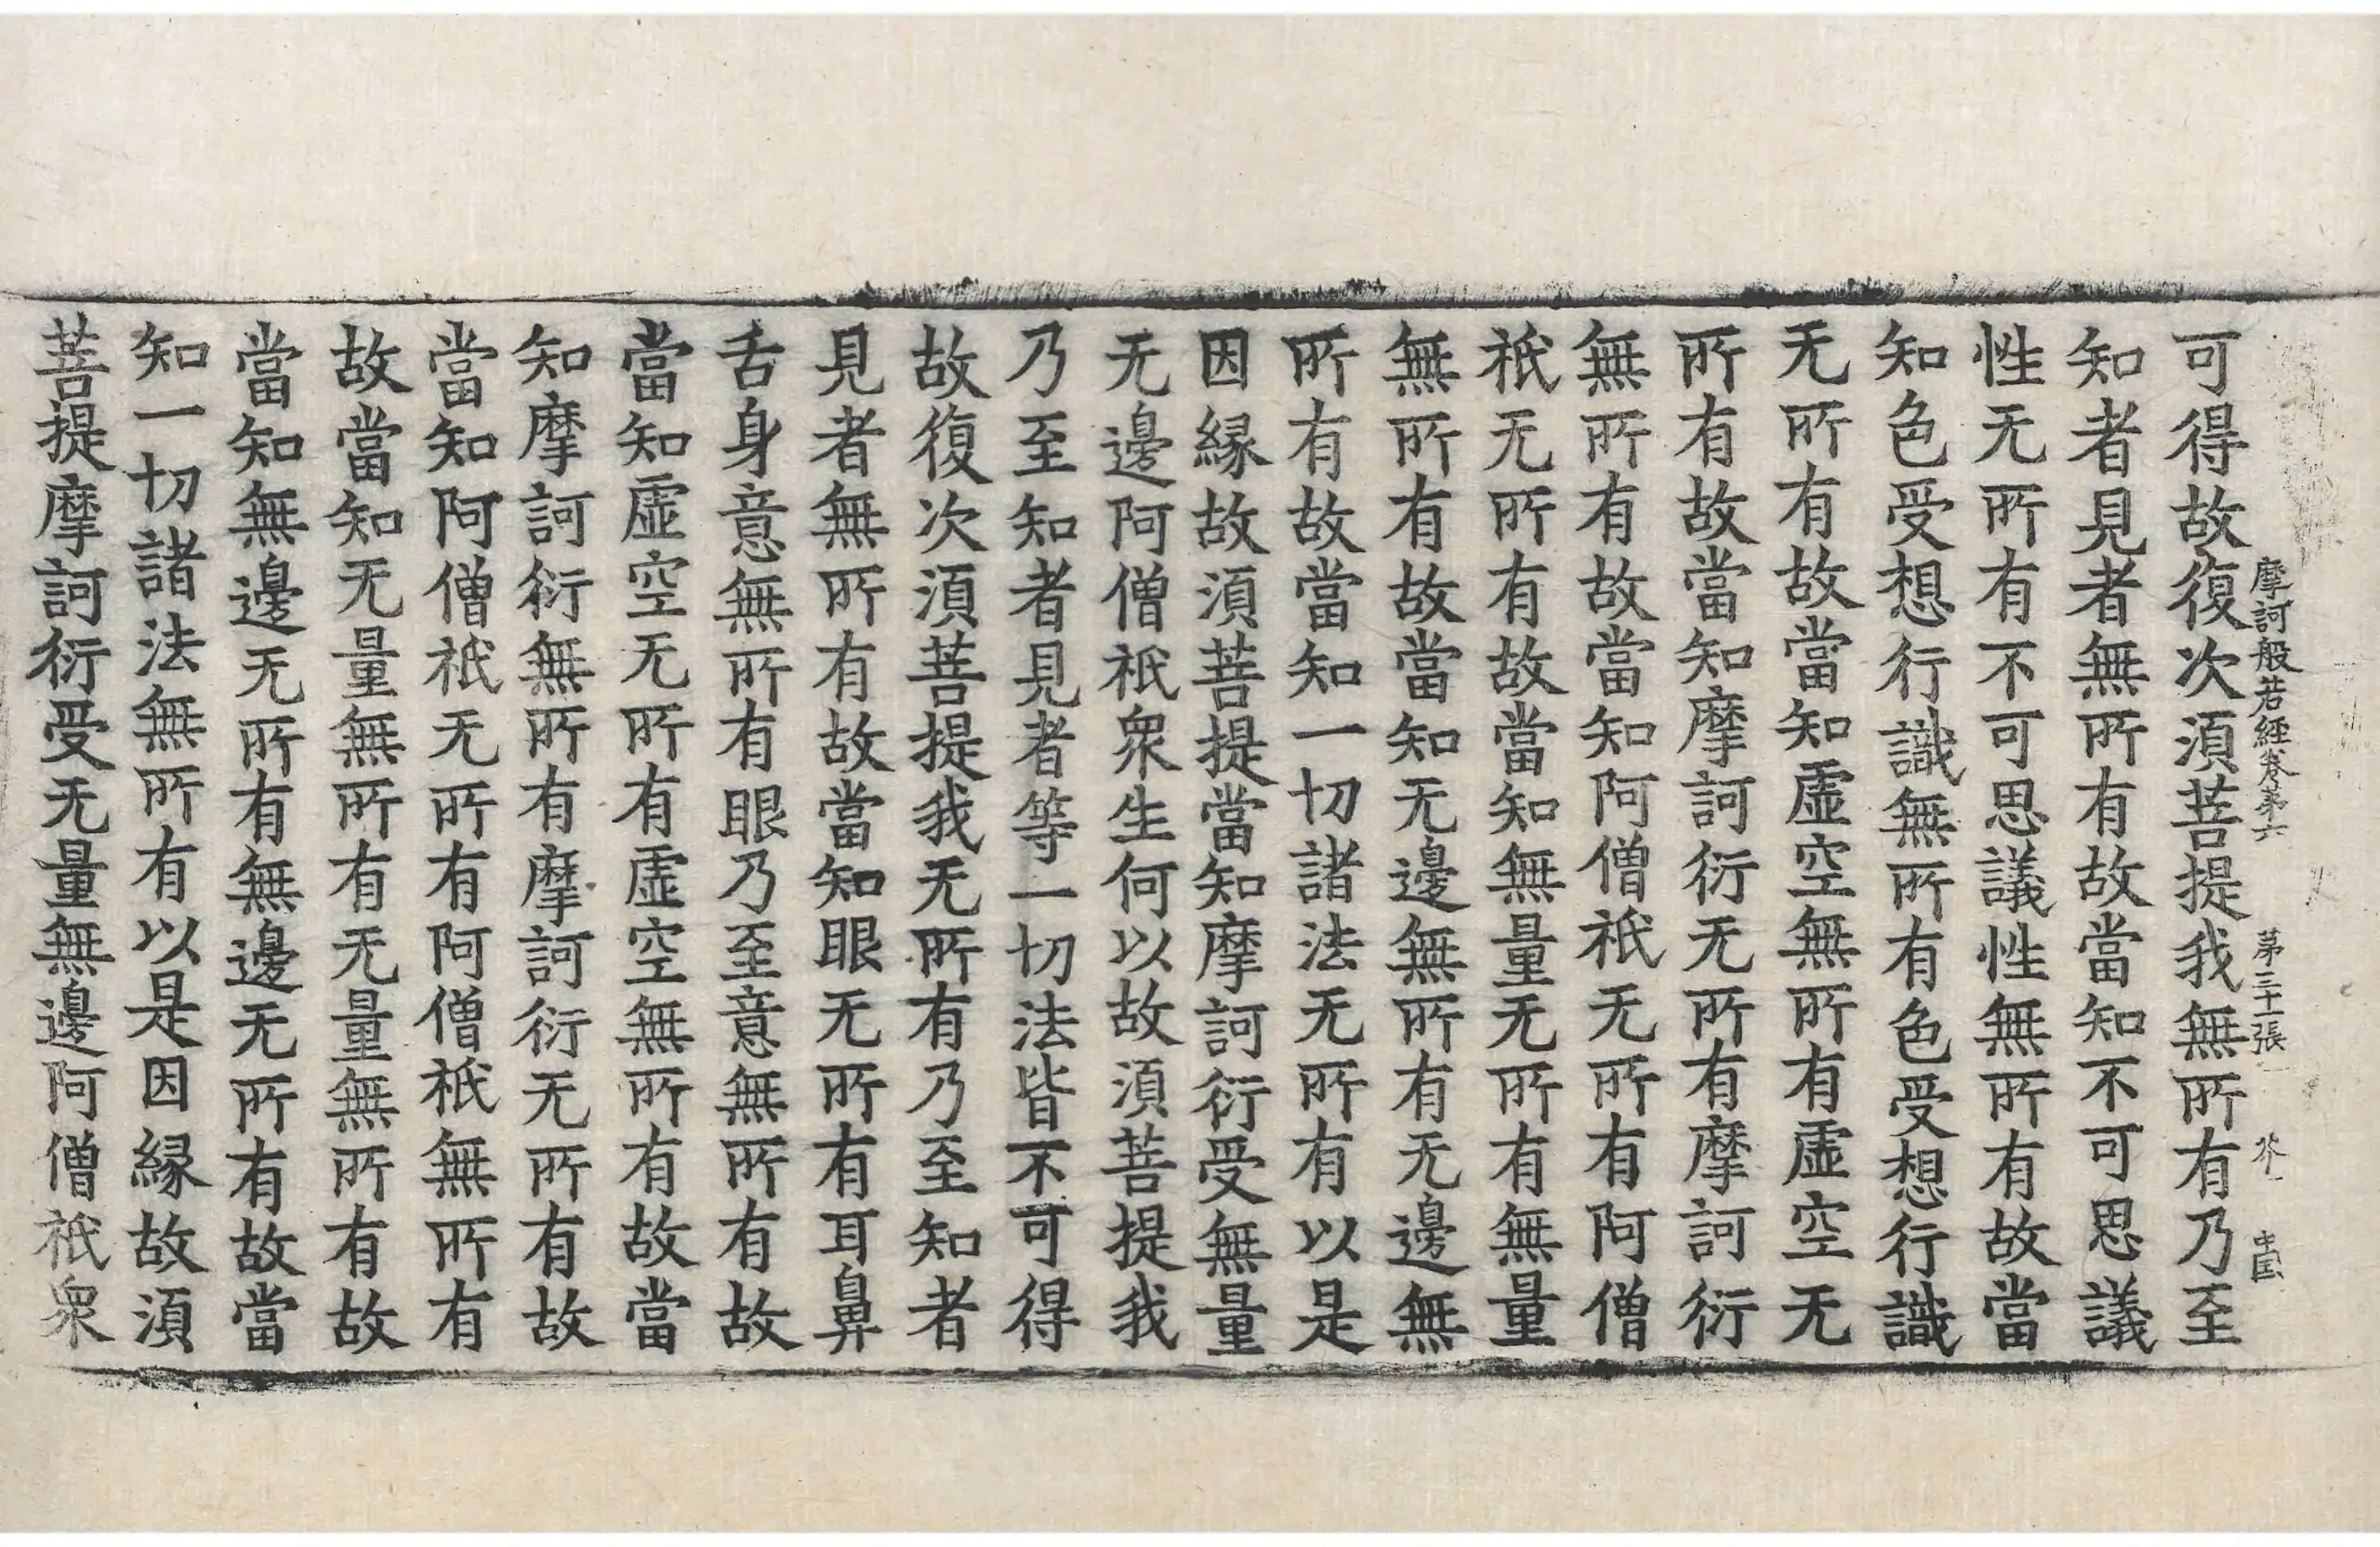 摩訶般若經卷第六 第三十張
可得故復次湏菩提我無所有乃至
知者見者無所有故當知不可思議
性无所有不可思議性無所有故當
知色受想行識無所有色受想行識
无所有故當知虛空無所有虛空无
所有故當知摩訶衍无所有摩訶衍
無所有故當知阿僧祇无所有阿僧
祇无所有故當知無量无所有無量
無所有故當知无邊無所有无邊無
所有故當知一切諸法无所有以是
因縁故湏菩提當知摩訶衍受無量
无邊阿僧祇衆生何以故湏菩提我
乃至知者見者等一切法皆不可得
故復次湏菩提我无所有乃至知者
見者無所有故當知眼无所有耳鼻
舌身意無所有眼乃至意無所有故
當知虛空无所有虛空無所有故當
知摩訶衍無所有摩訶衍无所有故
當知阿僧祇无所有阿僧祇無所有
故當知无量無所有无量無所有故
當知無邊无所有無邊无所有故當
知一切諸法無所有以是因縁故湏
菩提摩訶衍受无量無邊阿僧祇衆